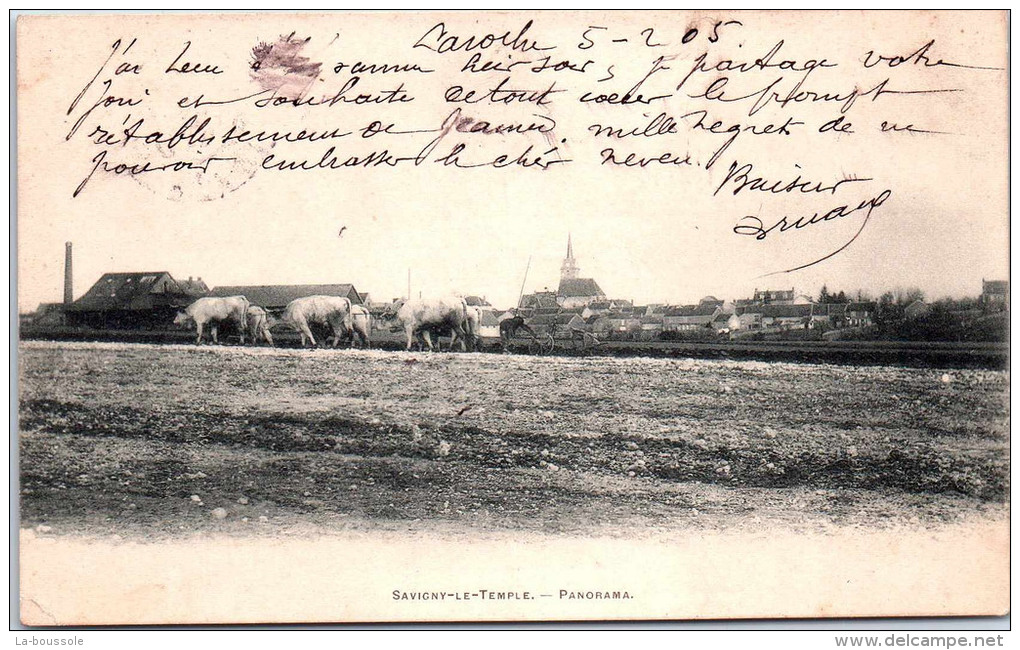 Laroche 5-2 05
j'ai lecu hier soir, je partage votre
joie et souhaite de tout coeur le prompt
rétablissement de mille regrets de ne
pouvoir embrasser le cher neveu.
SAVIGNY-LE-TEMPLE. — PANORAMA.
La-boussole www.delcampe.net